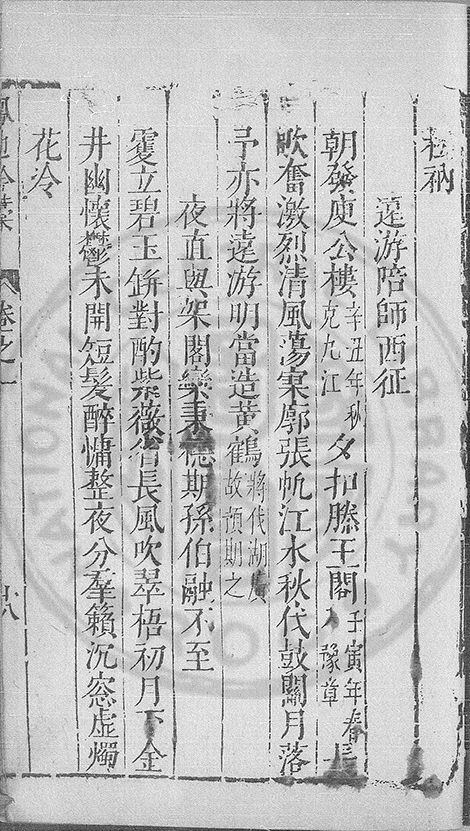 衽衲
遠游陪師西征
朝發庾公樓辛丑年秋克九江夕扣滕王閣壬寅年春入豫章
歘奮激烈清風蕩寥廓張帆江水秋伐鼓關月落
予亦將遠游明當造黃鶴將伐湖廣故預期之
夜直與架閣欒秉德期孫伯融不至
竚立碧玉缾對酌紫薇省長風吹翠梧初月下金
井幽懷鬱未開短髮醉慵整夜分羣籟沉窓虛燭
花冷
卷之一
十八